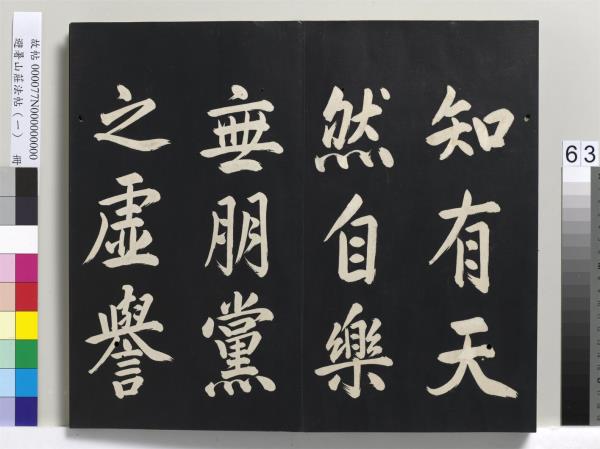 知有天
然自樂
無朋黨
之虛譽
故帖 000077N000000000
避暑山莊法帖（一） 冊
63